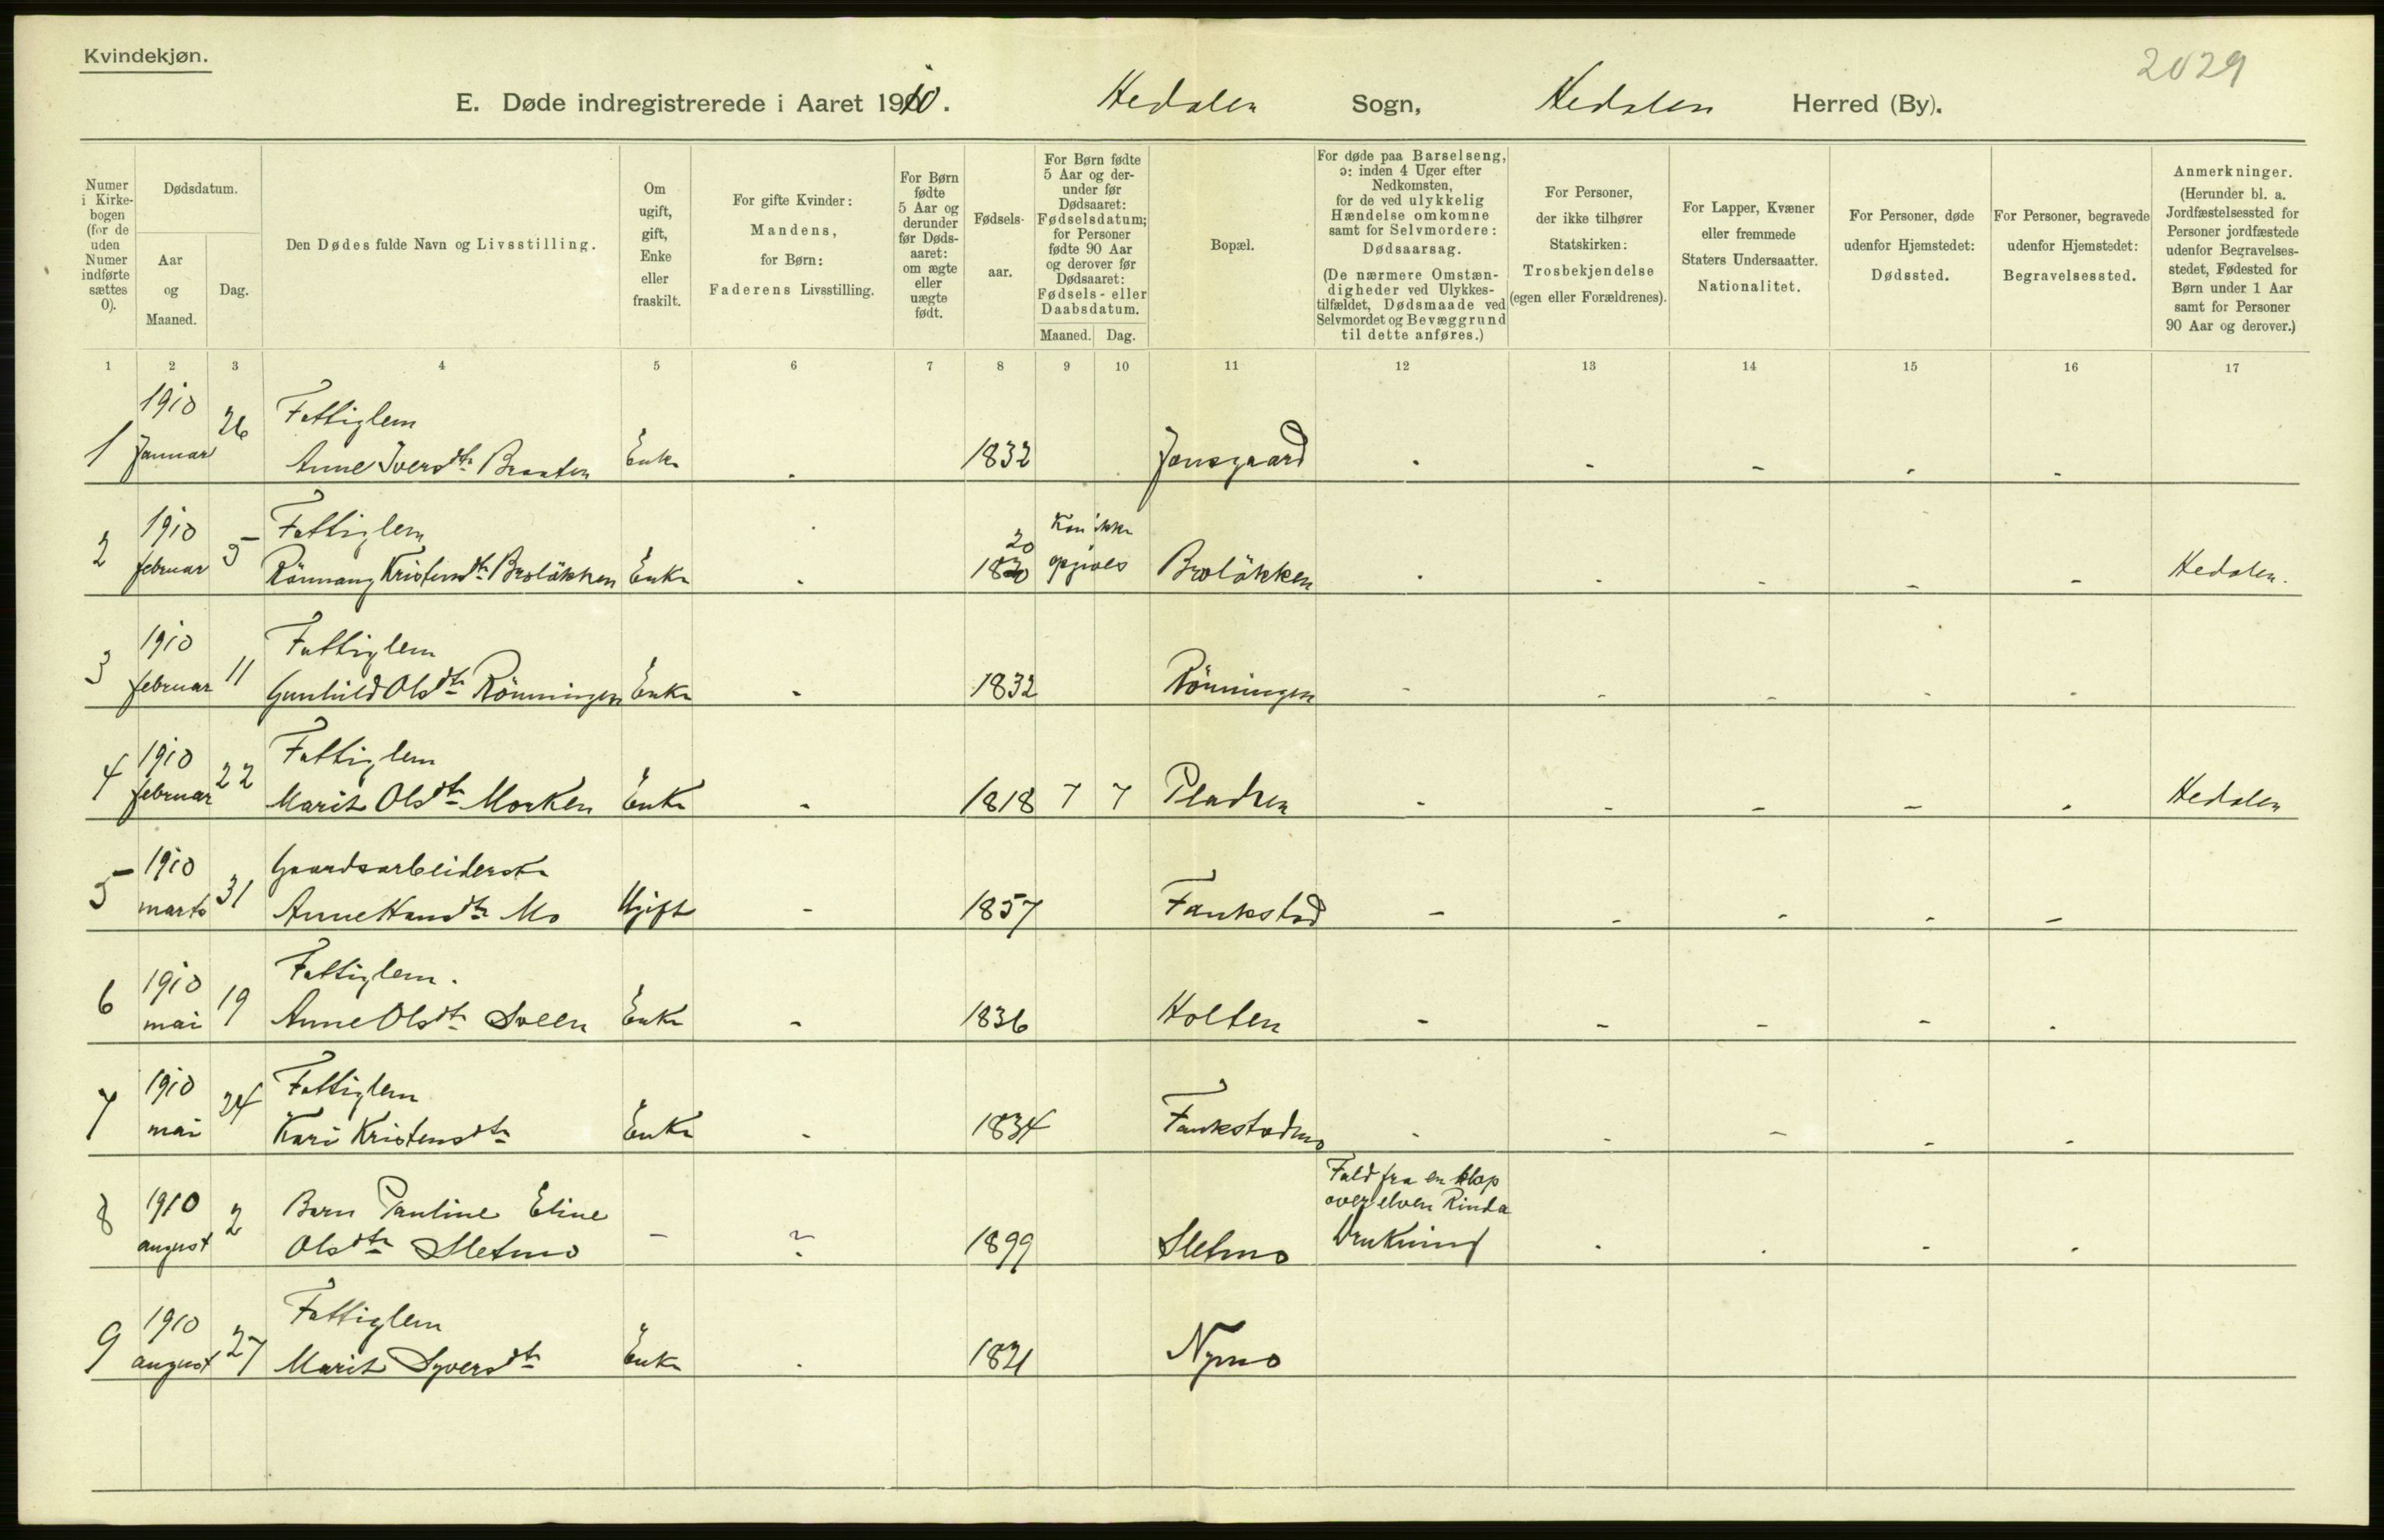 Kvindekjøn.
2029
E. Døde indregistrerede i Aaret 1910. Hedalen Sogn, Hedalen Herred (By).
Numer i Kirkebogen (for de uden Numer indførte sættes 0).
Dødsdatum.
Aar og Maaned.
Dag.
Den Dødes fulde Navn og Livsstilling.
Om ugift, gift, Enke eller fraskilt.
For gifte Kvinder: Mandens, for Børn: Faderens Livsstilling.
For Børn fødte 5 Aar og derunder før Dødsaaret: om ægte eller uægte født.
Fødselsaar.
For Børn fødte 5 Aar og derunder før Dødsaaret: Fødselsdatum; for Personer fødte 90 Aar og derover før Dødsaaret: Fødsels- eller Daabsdatum.
Maaned. Dag.
Bopæl.
For døde paa Barselseng, ɔ: inden 4 Uger efter Nedkomsten, for de ved ulykkelig Hændelse omkomne samt for Selvmordere: Dødsaarsag.
(De nærmere Omstændigheder ved Ulykkestilfældet, Dødsmaade ved Selvmordet og Bevæggrund til dette anføres.)
For Personer, der ikke tilhører Statskirken: Trosbekjendelse (egen eller Forældrenes).
For Lapper, Kvæner eller fremmede Staters Undersaatter. Nationalitet.
For Personer, døde udenfor Hjemstedet: Dødssted.
For Personer, begravede udenfor Hjemstedet: Begravelsessted.
Anmerkninger.
(Herunder bl. a. Jordfæstelsessted for Personer jordfæstede udenfor Begravelsesstedet, Fødested for Børn under 1 Aar samt for Personer 90 Aar og derover.)
1 2 3 4 5 6 7 8 9 10 11 12 13 14 15 16 17
1910 26 Fattiglem
1 Januar Anne Iversdtr Braaten Enke - 1832 Jonsgaard - - - - -
1910 5 Fattiglem 20 Kan ikke
2 februar Rönnaug Kristensdtr Brolökken Enke - 1830 opgives Brolökken - - - - - Hedalen.
1910 Fattiglem
3 februar 11 Gunhild Olsdtr Rönningen Enke - 1832 Rönningen - - - - -
1910 Fattiglem
4 februar 22 Marit Olsdtr Morken Enke - 1818 7 7 Pladsen - - - - - Hedalen
1910 Gaardsarbeiderske
5 marts 31 Anne Hansdtr Mo Ugift - 1857 Faukstad - - - - -
1910 Fattiglem.
6 mai 19 Anne Olsdtr Sveen Enke - 1836 Holten - - - - -
1910 Fattiglem
7 mai 24 Kari Kristensdtr Enke - 1834 Faukstadmo - - - - -
Fald fra en klop
8 1910 2 Barn Pauline Eline over elven Rinda
august Olsdtr Sletmo - - 1899 Sletmo Drukning - - - -
1910 Fattiglem
9 august 27 Marit Syversdtr Enke - 1821 Nymo